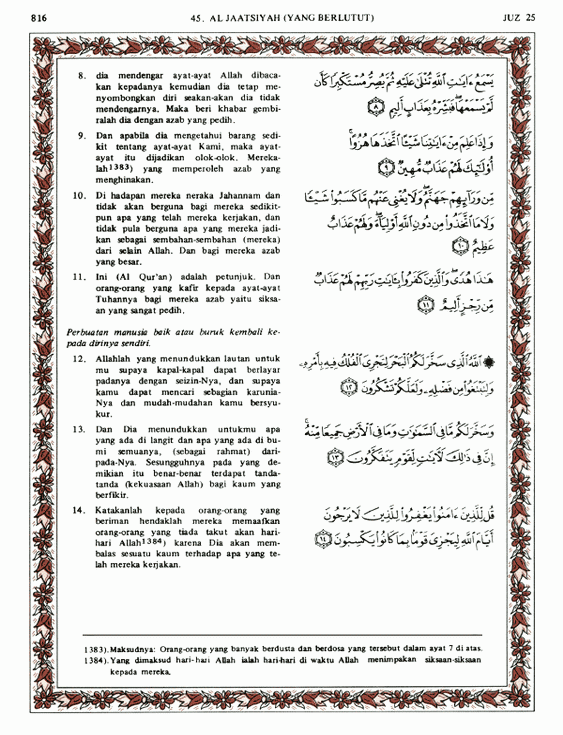 816
45. AL JAATSIYAH (YANG BERLUTUT)
JUZ 25
8. dia mendengar ayat-ayat Allah dibaca-
kan kepadanya kemudian dia tetap me-
nyombongkan diri seakan-akan dia tidak
mendengarnya. Maka beri khabar gembi-
ralah dia dengan azab yang pedih.
يَسْمَعُ ءَايَٰتِ ٱللَّهِ تُتْلَىٰ عَلَيْهِ ثُمَّ يُصِرُّ مُسْتَكْبِرًا كَأَن
لَّمْ يَسْمَعْهَا ۖ فَبَشِّرْهُ بِعَذَابٍ أَلِيمٍ ٨
9. Dan apabila dia mengetahui barang sedi-
kit tentang ayat-ayat Kami, maka ayat-
ayat itu dijadikan olok-olok. Mereka-
lah1383) yang memperoleh azab yang
menghinakan.
وَإِذَا عَلِمَ مِنْ ءَايَٰتِنَا شَيْـًٔا ٱتَّخَذَهَا هُزُوًا ۚ
أُو۟لَٰٓئِكَ لَهُمْ عَذَابٌ مُّهِينٌ ٩
10. Di hadapan mereka neraka Jahannam dan
tidak akan berguna bagi mereka sedikit-
pun apa yang telah mereka kerjakan, dan
tidak pula berguna apa yang mereka jadi-
kan sebagai sembahan-sembahan (mereka)
dari selain Allah. Dan bagi mereka azab
yang besar.
مِّن وَرَآئِهِمْ جَهَنَّمُ ۖ وَلَا يُغْنِى عَنْهُم مَّا كَسَبُوا۟ شَيْـًٔا
وَلَا مَا ٱتَّخَذُوا۟ مِن دُونِ ٱللَّهِ أَوْلِيَآءَ ۖ وَلَهُمْ عَذَابٌ
عَظِيمٌ ١٠
11. Ini (Al Qur'an) adalah petunjuk. Dan
orang-orang yang kafir kepada ayat-ayat
Tuhannya bagi mereka azab yaitu siksa-
an yang sangat pedih.
هَٰذَا هُدًى ۖ وَٱلَّذِينَ كَفَرُوا۟ بِـَٔايَٰتِ رَبِّهِمْ لَهُمْ عَذَابٌ
مِّن رِّجْزٍ أَلِيمٌ ١١
Perbuatan manusia baik atau buruk kembali ke-
pada dirinya sendiri.
12. Allahlah yang menundukkan lautan untuk
mu supaya kapal-kapal dapat berlayar
padanya dengan seizin-Nya, dan supaya
kamu dapat mencari sebagian karunia-
Nya dan mudah-mudahan kamu bersyu-
kur.
۞ ٱللَّهُ ٱلَّذِى سَخَّرَ لَكُمُ ٱلْبَحْرَ لِتَجْرِىَ ٱلْفُلْكُ فِيهِ بِأَمْرِهِۦ
وَلِتَبْتَغُوا۟ مِن فَضْلِهِۦ وَلَعَلَّكُمْ تَشْكُرُونَ ١٢
13. Dan Dia menundukkan untukmu apa
yang ada di langit dan apa yang ada di bu-
mi semuanya, (sebagai rahmat) dari-
pada-Nya. Sesungguhnya pada yang de-
mikian itu benar-benar terdapat tanda-
tanda (kekuasaan Allah) bagi kaum yang
berfikir.
وَسَخَّرَ لَكُم مَّا فِى ٱلسَّمَٰوَٰتِ وَمَا فِى ٱلْأَرْضِ جَمِيعًا مِّنْهُ ۚ
إِنَّ فِى ذَٰلِكَ لَءَايَٰتٍ لِّقَوْمٍ يَتَفَكَّرُونَ ١٣
14. Katakanlah kepada orang-orang yang
beriman hendaklah mereka memaafkan
orang-orang yang tiada takut akan hari-
hari Allah1384) karena Dia akan mem-
balas sesuatu kaum terhadap apa yang te-
lah mereka kerjakan.
قُل لِّلَّذِينَ ءَامَنُوا۟ يَغْفِرُوا۟ لِلَّذِينَ لَا يَرْجُونَ
أَيَّامَ ٱللَّهِ لِيَجْزِىَ قَوْمًۢا بِمَا كَانُوا۟ يَكْسِبُونَ ١٤
1383). Maksudnya: Orang-orang yang banyak berdusta dan berdosa yang tersebut dalam ayat 7 di atas.
1384). Yang dimaksud hari-hari Allah ialah hari-hari di waktu Allah menimpakan siksaan-siksaan
kepada mereka.